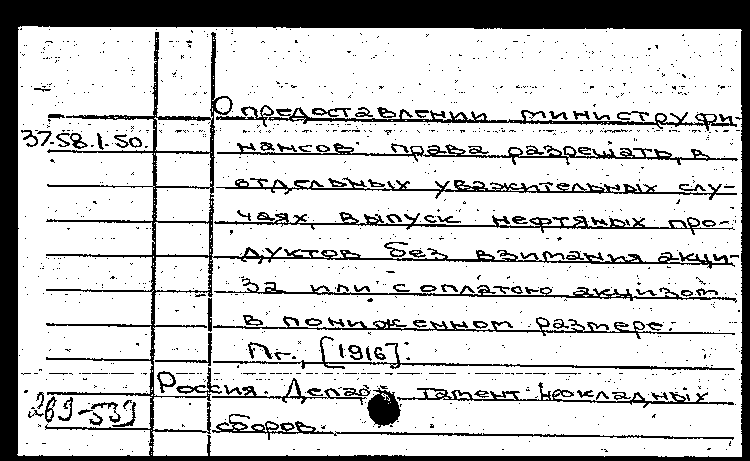 О предоставлении министру фи-
37.58.1.50.
нансов права разрешать, в
отдельных уважительных слу-
чаях, выпуск нефтяных про-
дуктов без взимания акци-
за или с оплатою акцизом
в пониженном размере.
Пг., [1916].
Россия. Департамент неокладных
269-539
сборов.